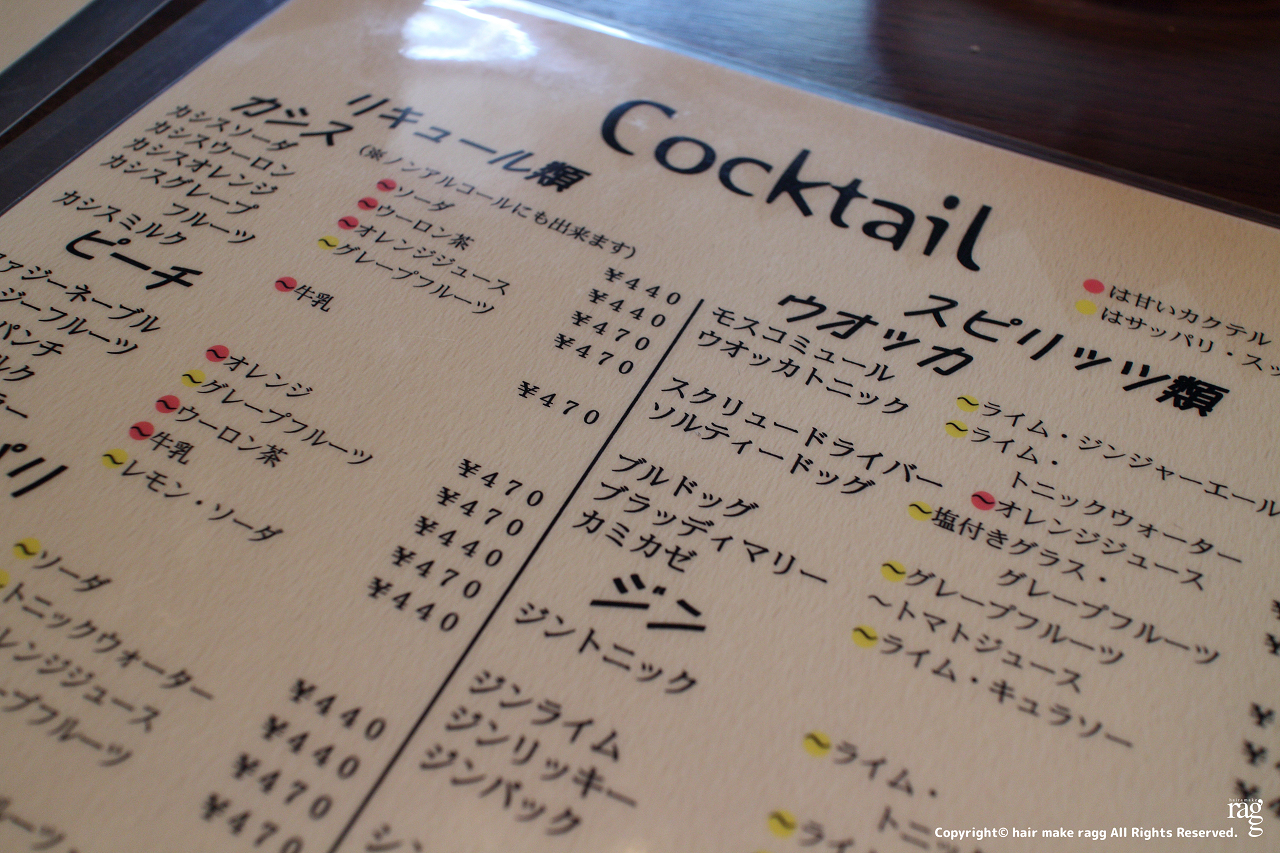 Cocktail
リキュール類
(※ノンアルコールにも出来ます)
カシス
カシスソーダ ～ソーダ ¥440
カシスウーロン ～ウーロン茶 ¥440
カシスオレンジ ～オレンジジュース ¥470
カシスグレープ ～グレープフルーツ ¥470
フルーツ
カシスミルク ～牛乳 ¥470
ピーチ
ァジーネーブル ～オレンジ ¥470
ジーフルーツ ～グレープフルーツ ¥470
パンチ ～ウーロン茶 ¥440
ルク ～牛乳 ¥470
ラー ～レモン・ソーダ ¥440
パリ
～ソーダ ¥440
トニックウォーター ¥440
レンジジュース ¥470
ープフルーツ ¥470
ルーツ
は甘いカクテル
はサッパリ・スッ
スピリッツ類
ウオッカ
モスコミュール ～ライム・ジンジャーエール
ウオッカトニック ～ライム・
トニックウォーター
スクリュードライバー ～オレンジジュース
ソルティードッグ ～塩付きグラス・
グレープフルーツ
ブルドッグ ～グレープフルーツ
ブラッディマリー ～トマトジュース
カミカゼ ～ライム・キュラソー
ジン
ジントニック ～ライム・
トニ
ジンライム ～ライ
ジンリッキー
ジンバック
シン
rag
Copyright© hair make ragg All Rights Reserved.